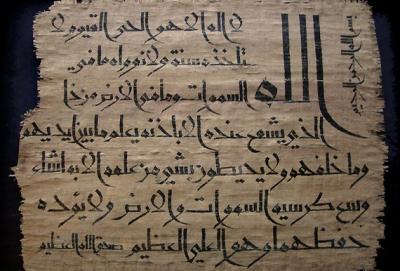 بسم الله الرحمن الرحيم
الله
لا اله الا هو الحي القيوم لا
تاخذه سنة ولا نوم له ما في
السموات وما في الارض من ذا
الذي يشفع عنده الا باذنه يعلم ما بين ايديهم
وما خلفهم ولا يحيطون بشي من علمه الا بما شاء
وسع كرسيه السموات والارض ولا يؤده
حفظهما وهو العلي العظيم صدق الله العظيم